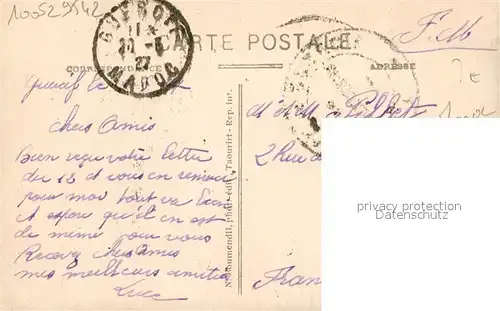 100529542
GUERCIF
11
22
MAROC
CARTE POSTALE
F. M
CORRESPONDANCE
ADRESSE
Guercif le
chers Amis
Bien reçu votre lettre
du 13 et vous en remercie
pour moi tout va bien
et espoir qu'il en est
de même pour vous
Recevez chers Amis
mes meilleurs amitiés
Luce
phot. édit. Taourirt - Rep. int.
M et M
2 Rue
Fran
privacy protection
Datenschutz